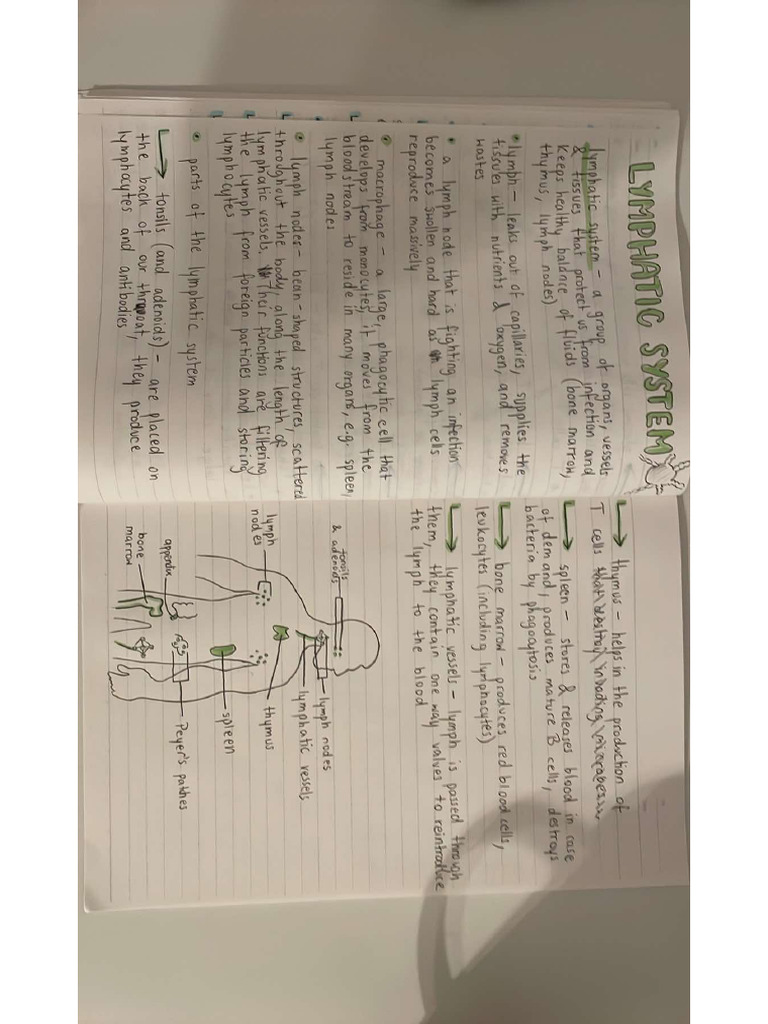 LYMPHATIC SYSTEM
lymphatic system - a group of organs, vessels
& tissues that protect us from infection and
keeps healthy balance of fluids (bone marrow,
thymus, lymph nodes)
• lymph - leaks out of capillaries, supplies the
tissues with nutrients & oxygen, and removes
wastes
• a lymph node that is fighting an infection
becomes swollen and hard as lymph cells
reproduce massively
• macrophage - a large, phagocytic cell that
develops from monocytes, it moves from the
bloodstream to reside in many organs, e.g. spleen,
lymph nodes
• lymph nodes - bean-shaped structures, scattered
throughout the body, along the length of
lymphatic vessels. Their functions are filtering
the lymph from foreign particles and storing
lymphocytes
• parts of the lymphatic system
→ tonsils (and adenoids) - are placed on
the back of our throat, they produce
lymphocytes and antibodies
→ thymus - helps in the production of
T cells that destroy invading microbes
→ spleen - stores & releases blood in case
of demand, produces mature B cells, destroys
bacteria by phagocytosis
→ bone marrow - produces red blood cells,
leukocytes (including lymphocytes)
→ lymphatic vessels - lymph is passed through
them, they contain one way valves to reintroduce
the lymph to the blood
tonsils
& adenoids
lymph nodes
lymphatic vessels
lymph
nodes
thymus
spleen
appendix
Peyer's patches
bone
marrow